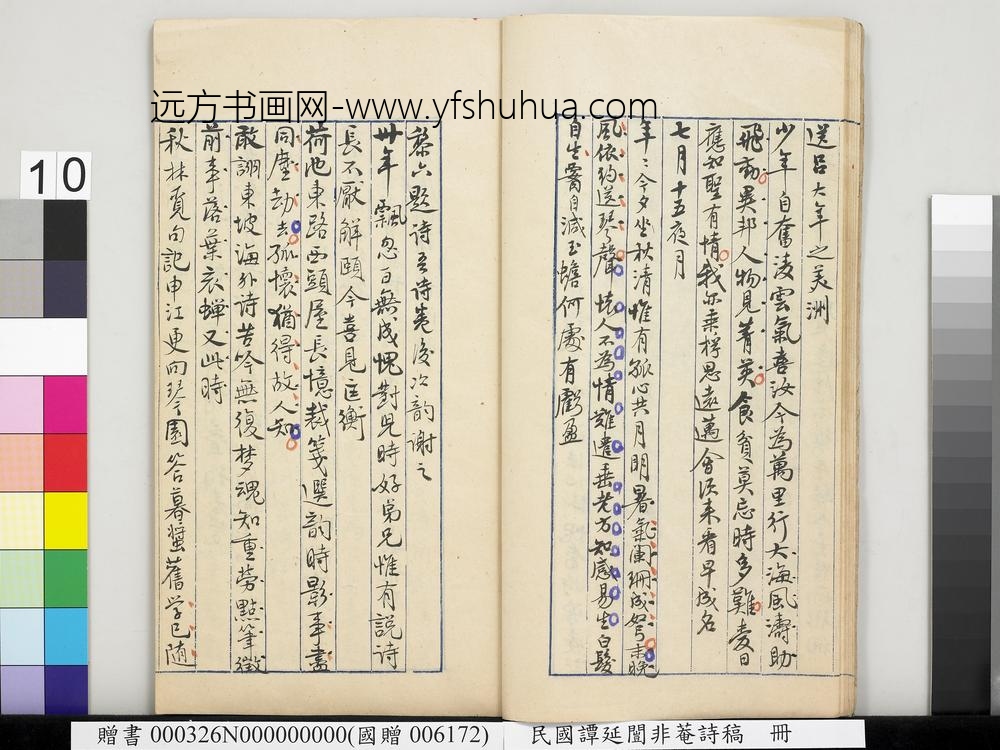 远方书画网-www.yfshuhua.com
送呂大年之美洲
少年自奮凌雲氣喜汝今為萬里行大海風濤助
飛動異邦人物見菁英食貧莫忘時多難
應知聖有情我亦乘桴思遠邁會須來看早成名
七月十五夜月
年〻今夕坐秋清惟有孤心共月明暑氣闌珊成
風依約送琴聲懷人不為情難遣垂老方知感易生白髮
自生誰自減玉蟾何處有虧盈
黎六題詩吾詩卷後次韵謝之
卅年飄忽百無成愧對兒時好弟兄惟有說詩
長不厭解頤今喜見匡衡
荷池東路西頭屋長憶裁箋選韵時影事
同塵劫去孤懷猶得故人知
敢詡東坡海外詩苦吟無復梦魂知重勞點筆
前事落葉哀蟬又此時
秋林覓句記申江更向琴園答暮蛩舊学已随
10
贈書 000326N000000000(國贈 006172)
民國譚延闓非菴詩稿 冊